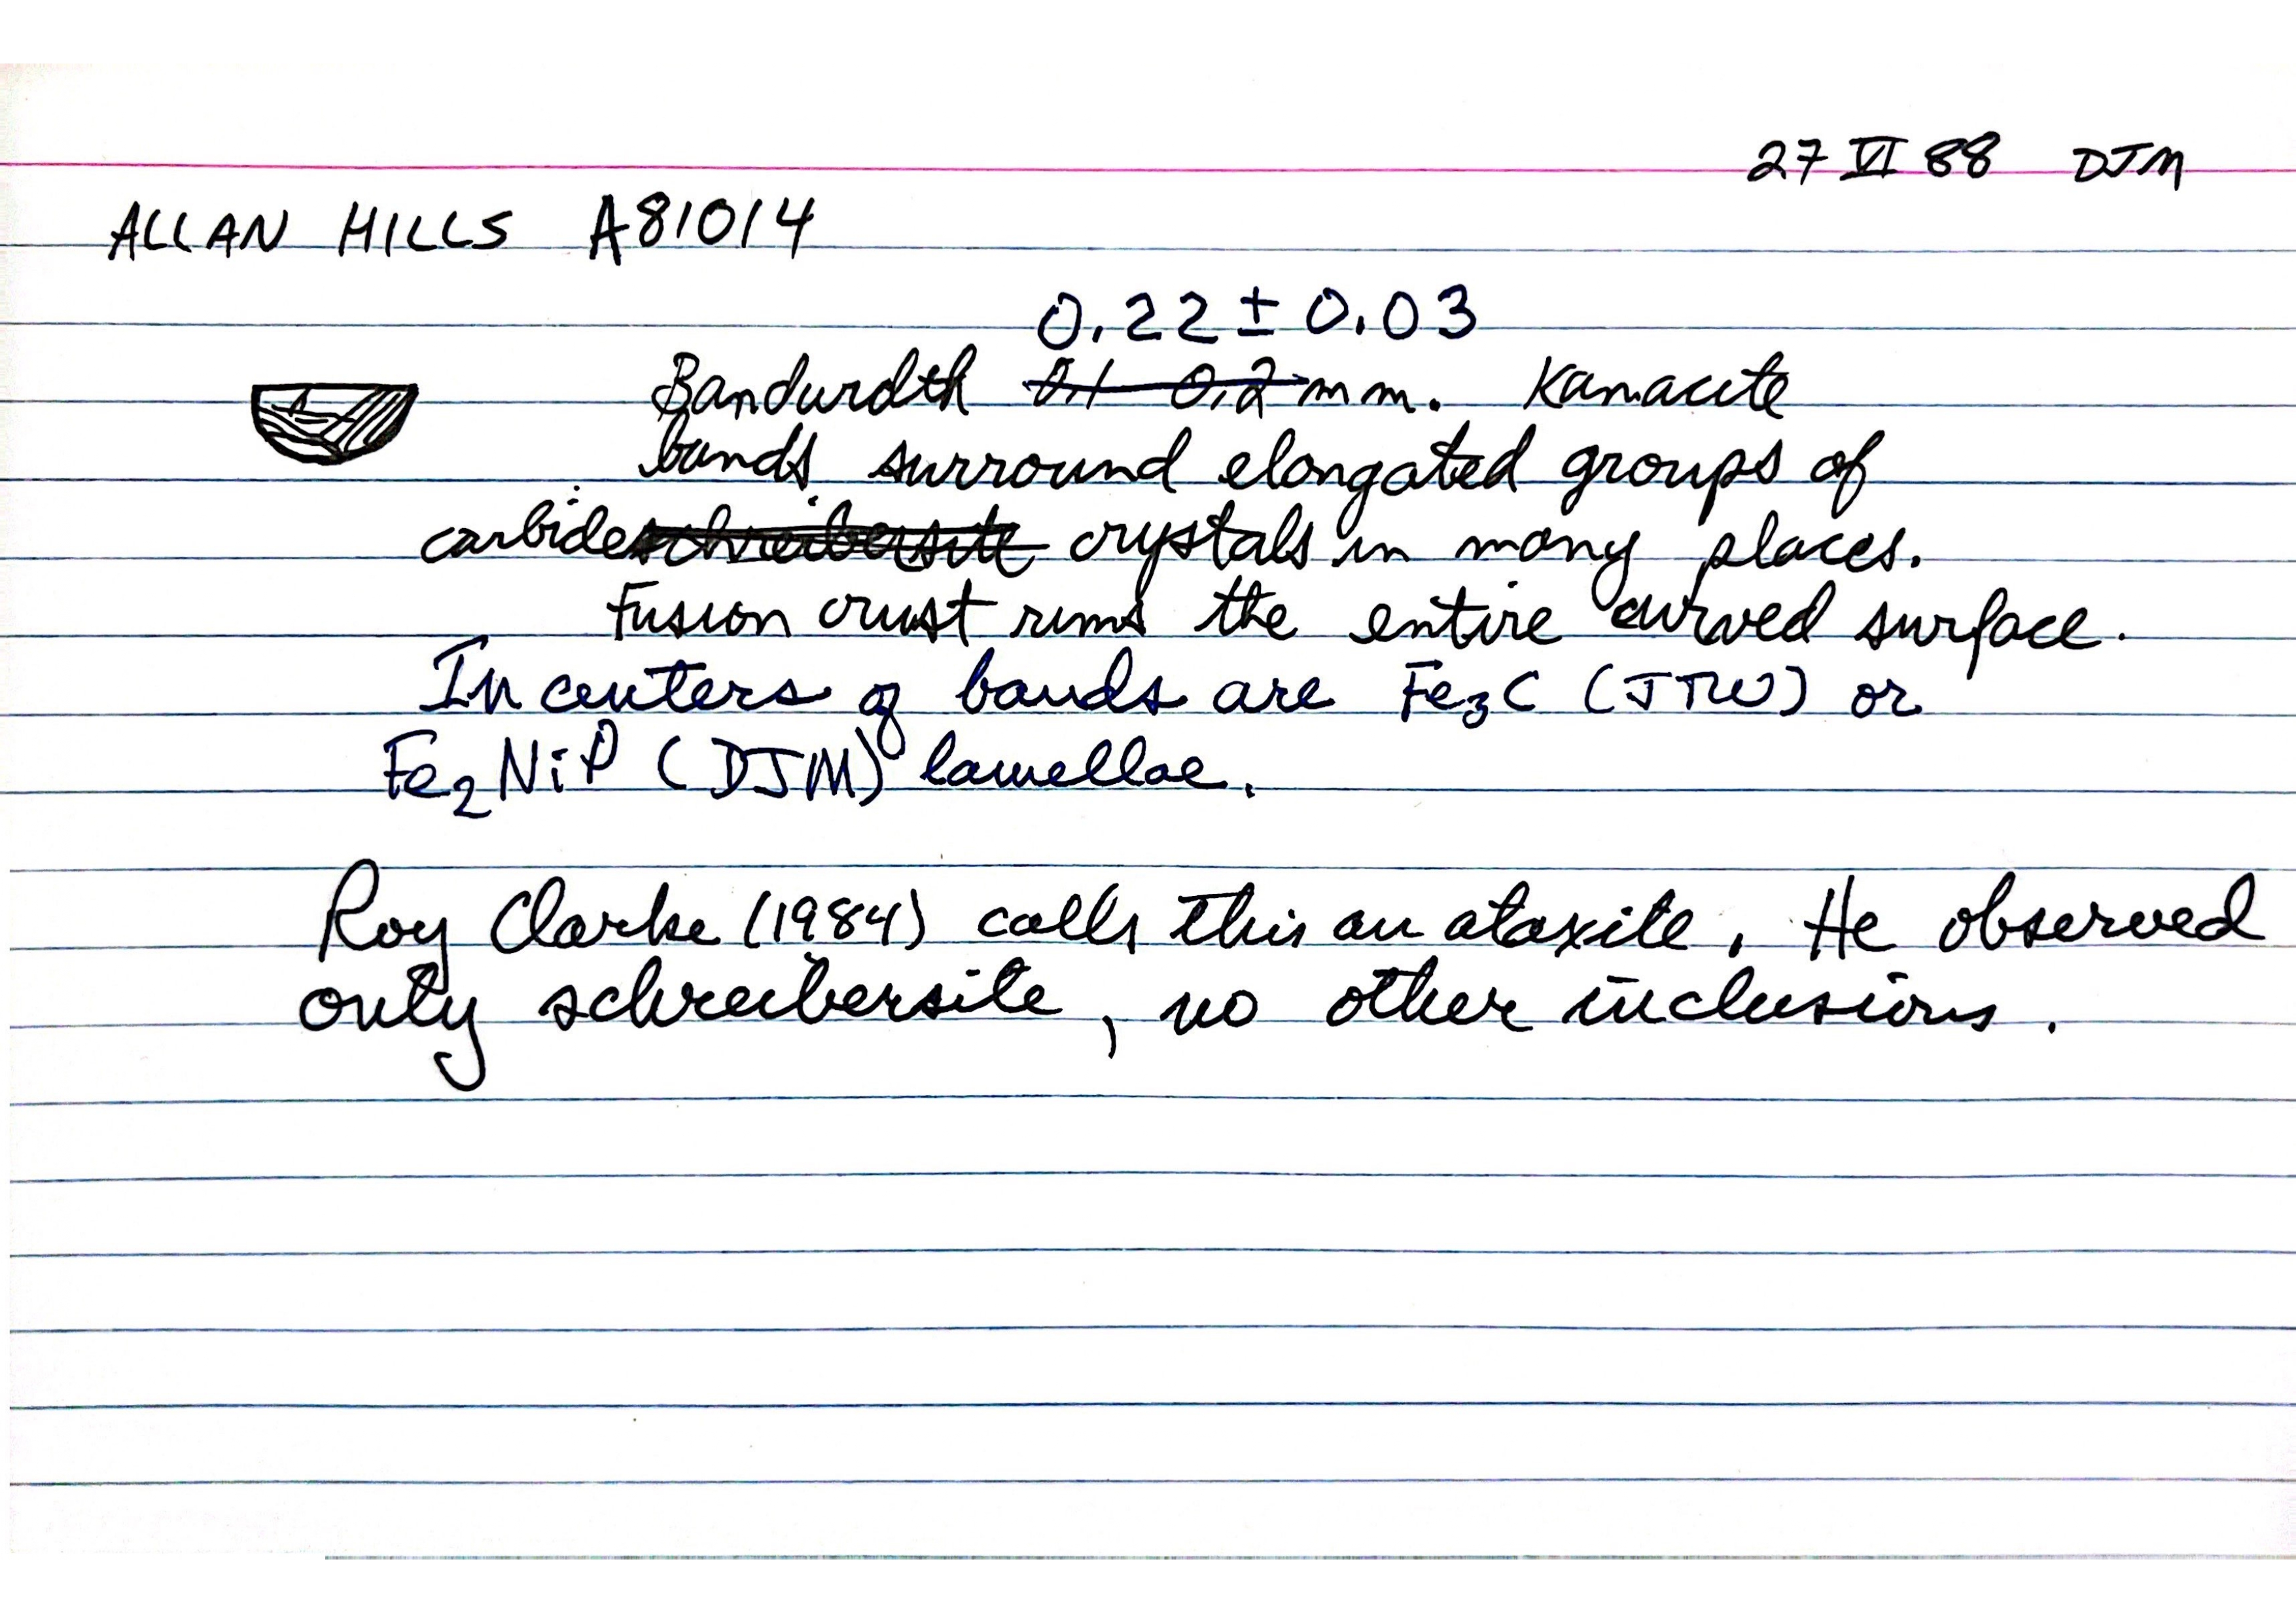 27 VI 88 DJM
ALLAN HILLS A81014
0.22 ± 0.03
Bandwidth 0.1 0.2 mm. Kamacite
bands surround elongated groups of
carbide schreibersite crystals in many places.
Fusion crust rims the entire curved surface.
In centers of bands are Fe₃C (JTW) or
Fe₂NiP (DJM) lamellae.
Roy Clarke (1984) calls this an ataxite. He observed
only schreibersite, no other inclusions.